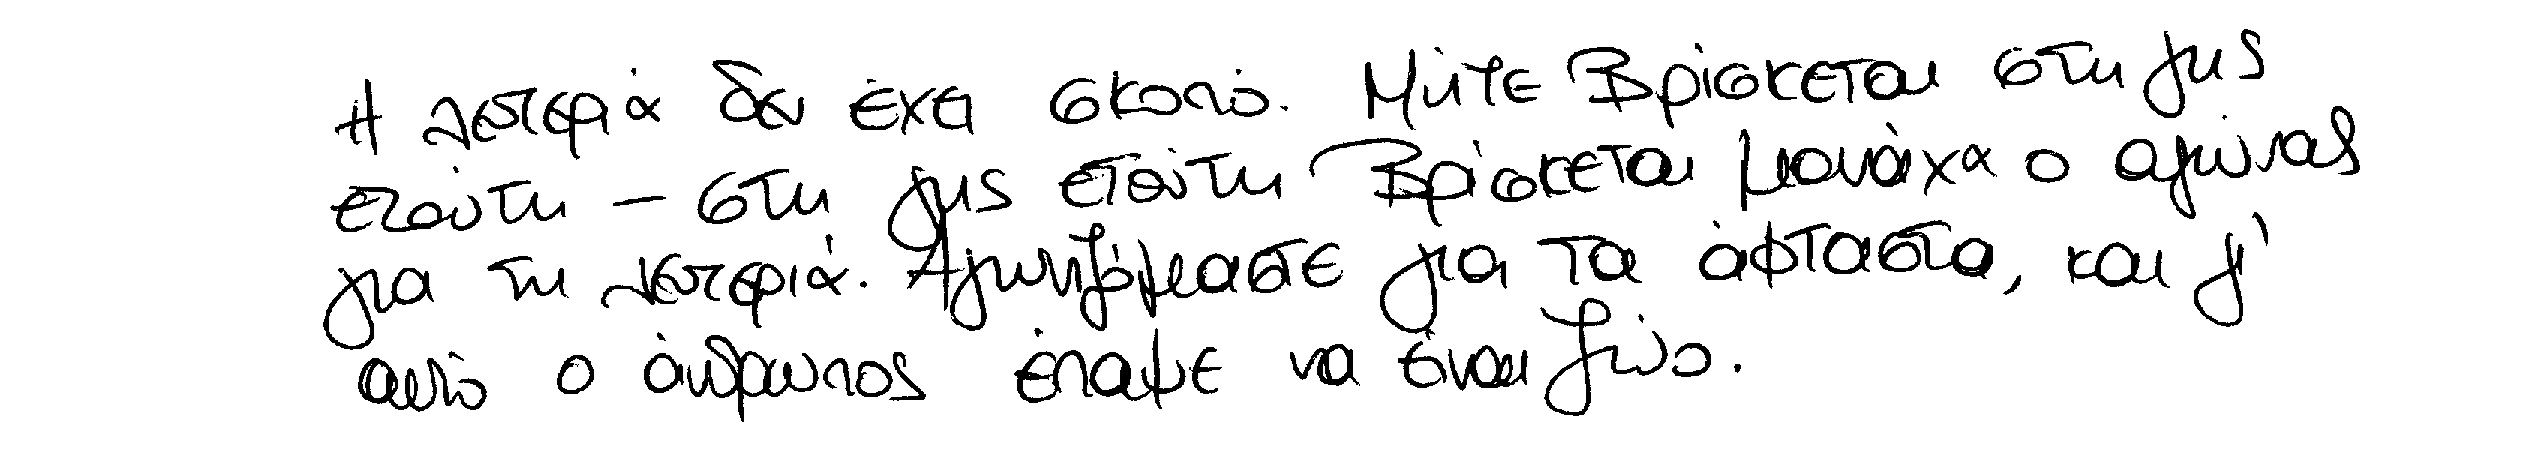 Η λευτεριά δεν έχει σκοπό. Μήτε βρίσκεται στη γης
ετούτη - στη γης ετούτη βρίσκεται μονάχα ο αγώνας
για τη λευτεριά. Αγωνιζόμαστε για τα άφταστα, και γι'
αυτό ο άνθρωπος έπαψε να είναι ζώο.